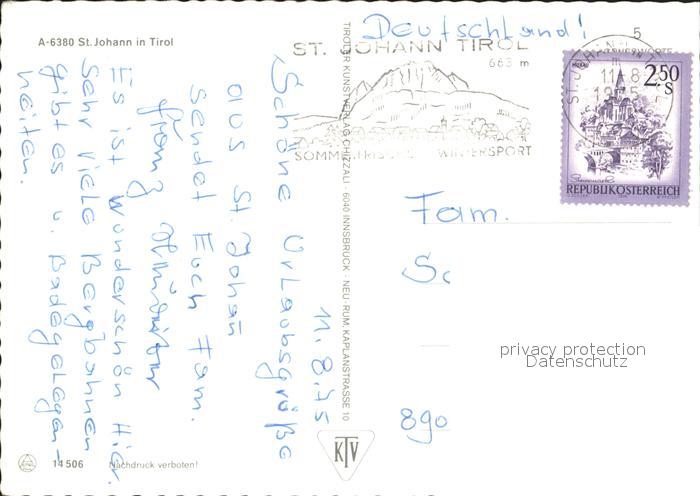 A-6380 St. Johann in Tirol
Deutschland!
5
ST. JOHANN TIROL
663 m
SOMMERFRISCHE WINTERSPORT
11.8
2.50 S
REPUBLIK ÖSTERREICH
TIROLER KUNSTVERLAG CHIZZALI · 6040 INNSBRUCK · NEU-RUM, KAPLANSTRASSE 10
11.8.75
Schöne Urlaubsgrüße
aus St. Johan
sendet Euch Fam.
Franz
Es ist wunderschön Hier.
Sehr viele Bergbahnen
gibt es u. Badegelegen-
heiten.
Fam.
Sc
privacy protection
Datenschutz
890
KTV
14506 Nachdruck verboten!